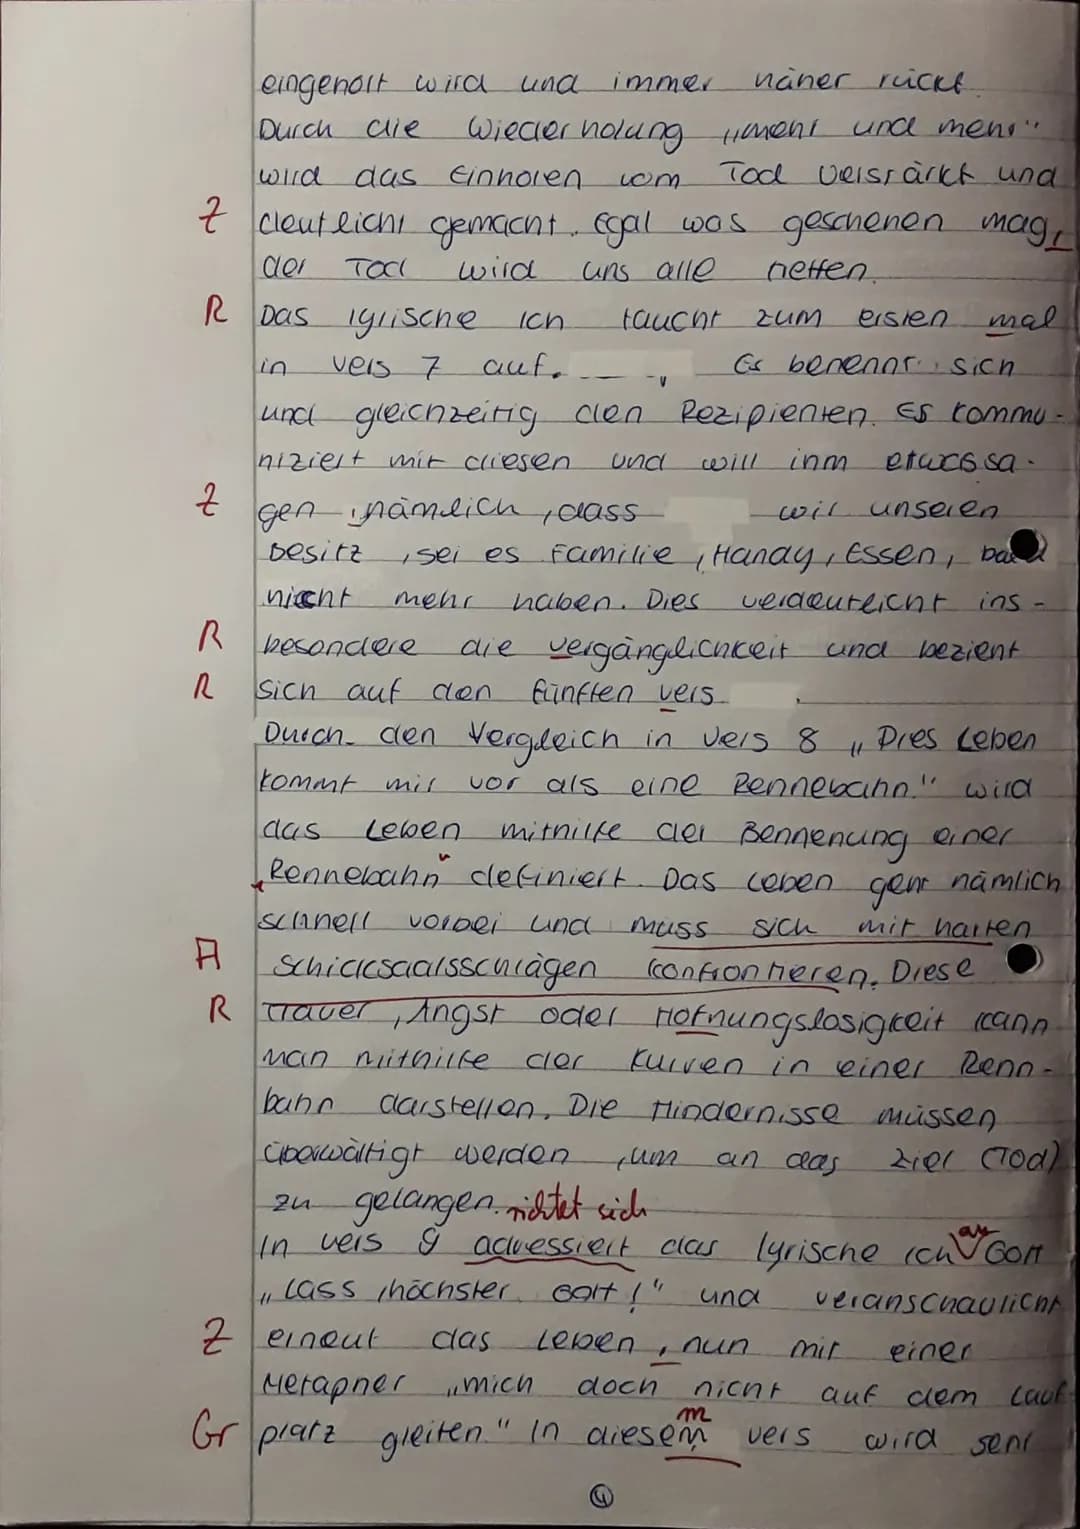 eingeholt wird und immer näher rückt.
Durch die Wiederholung „mehr und mehr"
wird das Einholen vom Tod verstärkt und
Z deutlicht gemacht. Egal was geschehen mag,
der Tod wird uns alle treffen.
R Das lyrische Ich taucht zum ersten mal
in Vers 7 auf. Es benennt sich
und gleichzeitig den Rezipienten. Es kommu-
niziert mit diesen und will ihm etwas sa-
Z gen, nämlich, dass wir unseren
Besitz, sei es Familie, Handy, Essen, bald
nicht mehr haben. Dies verdeutlicht ins-
R besondere die vergänglichkeit und bezieht
R sich auf den fünften vers.
Durch den Vergleich in Vers 8 „Dies Leben
kommt mir vor als eine Rennebahn." wird
das Leben mithilfe der Bennenung einer
„Rennebahn" definiert. Das Leben geht nämlich
schnell vorbei und muss sich mit harten
A Schicksaalsschlägen konfrontieren. Diese
R Trauer, Angst oder Hofnungslosigkeit kann
man mithilfe der Kurven in einer Renn-
bahn darstellen. Die Hindernisse müssen
überwältigt werden, um an das Ziel (Tod)
zu gelangen. richtet sich
In Vers 9 adressiert das lyrische Ich an Gott
„Lass, höchster Gott!" und veranschaulicht
Z erneut das Leben, nun mit einer
Metapher „mich doch nicht auf dem Lauf-
Gr platz gleiten." In diesem m Vers wird sehr
4